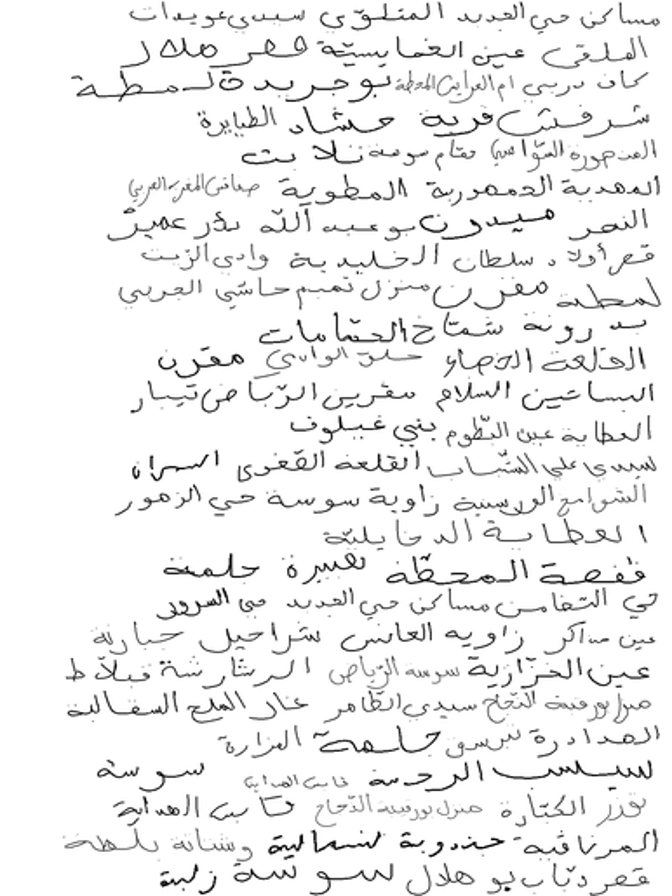 مساكن حي الحديد المتلوي سيدي عويدات
الملاقي عين الغمايسيّة قصر هلال
بوجريدة لمطة
شرفش قرية حشاد الطبايرة
المنصورة السّواسي مقام سوسة تلابت
المهدية الجمهورية المطوية صفاقس المغرب العربي
النحر ميدون بوعبد الله
قصر أولاد سلطان الخليدية وادي الزيت
لمطة مقرن منزل تميم حاشي الجربي
بدرونة شماخ الحمّامات
القلعة الخضراء حلق الوادي مقرن
البساتين السلام مقرين الرّياض تيبار
العطاية عين البطّوم بني غيلوف
سيدي علي الشّباب القلعة القصوى
الشوامخ الورسنية زاوية سوسة حي الزهور
العطاية الدخايليّة
قفصة المحطّة نفيسرة جلمة
حي التضامن مساكن حي الحديد حي السرور
عين مذاكر زاوية العانس شراحيل حبارنة
عين الخرّازية سوسة الرّياض الرشارشة قبلاط
منزل بورقيبة النّجاح سيدي الظّاهر غار الملح السقالبة
الهدادرة تبرسق جامعة الهزارة
الرحمة قابس المدينة سوسة
توزر الكتّارة منزل بورقيبة النّجاح قابس الهداية
المرناقية جندوبة الشمالية وشتاتة بلطة
قصر ذياب بو هلال سوسة زلبة